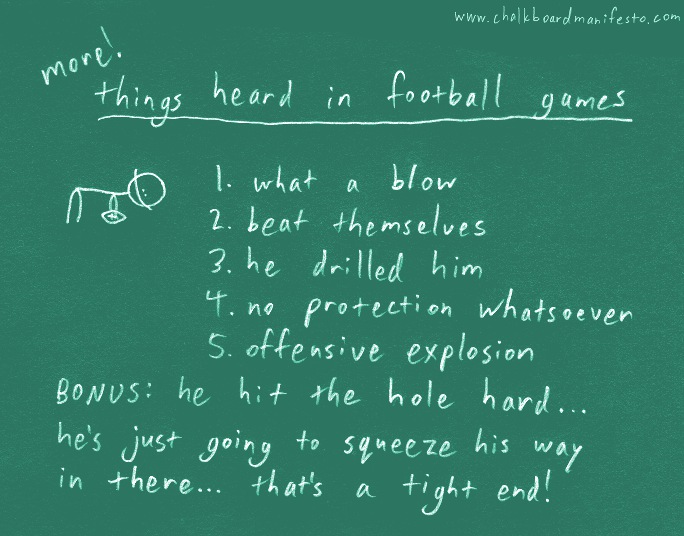 www.chalkboardmanifesto.com
more!
things heard in football games
1. what a blow
2. beat themselves
3. he drilled him
4. no protection whatsoever
5. offensive explosion
BONUS: he hit the hole hard...
he's just going to squeeze his way
in there... that's a tight end!